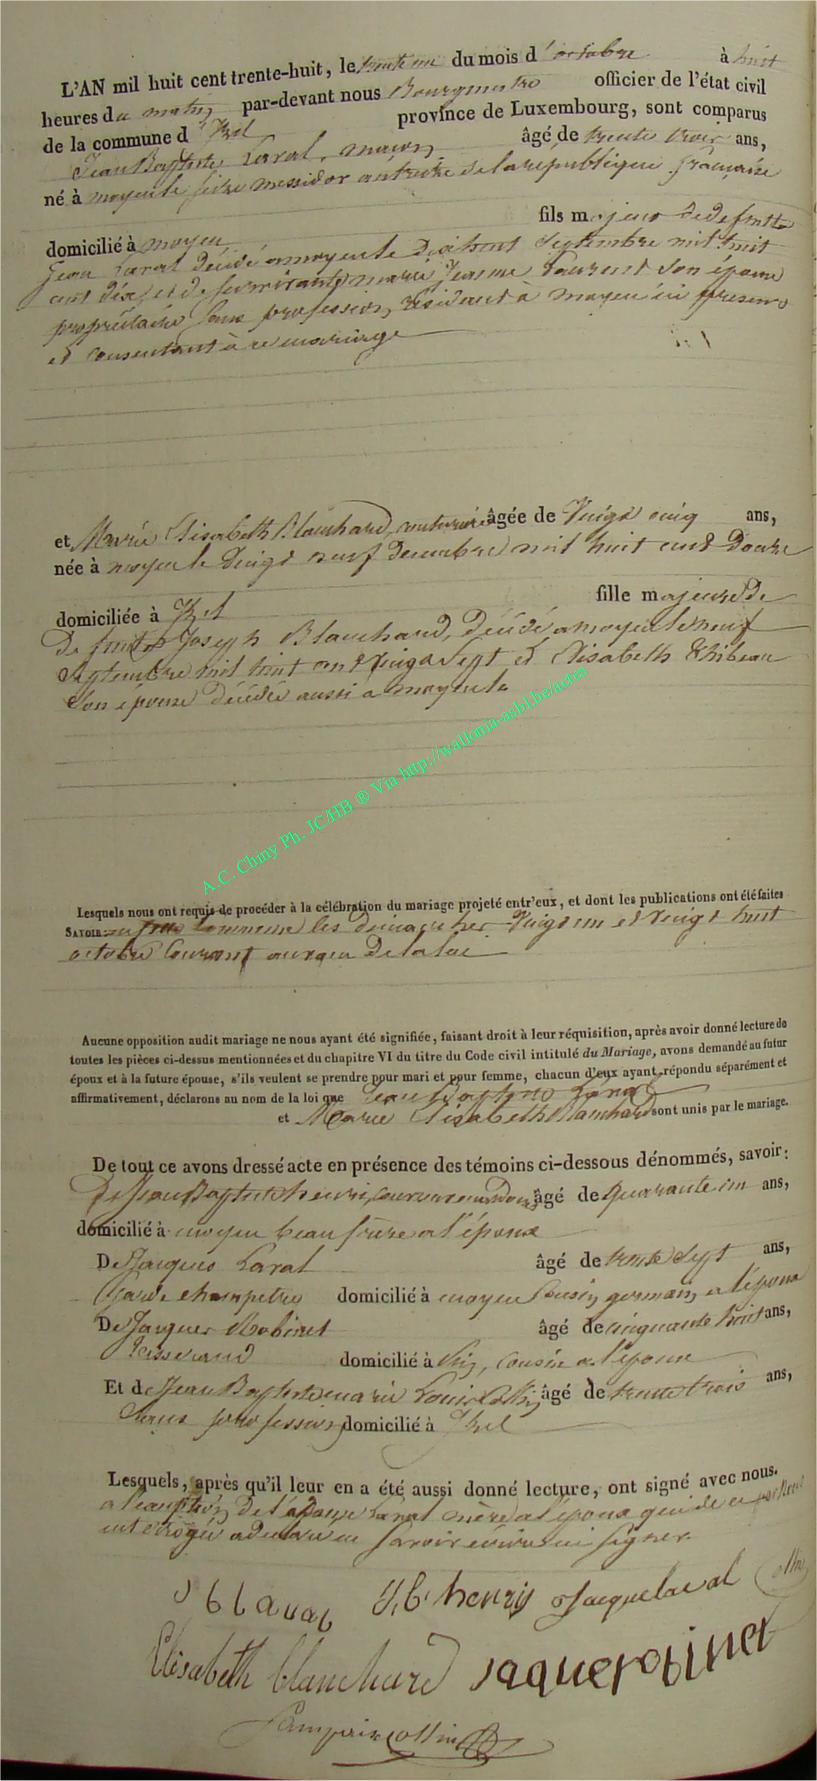 L'AN mil huit cent trente-huit, le trente un du mois d'octobre à huit
heures du matin par-devant nous Bourgmestre officier de l'état civil
de la commune d'Izel province de Luxembourg, sont comparus
Jean Baptiste Laval, maçon âgé de trente trois ans,
né à moyen le seize messidor an treize de la république française
domicilié à moyen fils majeur de defunt
Jean Laval décédé a moyen le dixhuit Septembre mil huit
cent dix et de survivante marie Jeanne Laurent son épouse
propriétaire sans profession, résidant à moyen ici présente
et consentant à ce mariage
et Marie Elisabeth Blanchard, couturière âgée de Vingt cinq ans,
née à moyen le vingt neuf decembre mil huit cent douze
domiciliée à Izel fille majeure de
Defunts Joseph Blanchard, décédé a moyen le neuf
Septembre mil huit cent vingt Sept et Elisabeth Thibeau
Son épouse décédée aussi a moyen le
A.C. Chiny Ph. JC/HB ® Via http://wallonia-asbl.be/actes
Lesquels nous ont requis de procéder à la célébration du mariage projeté entr'eux, et dont les publications ont été faites
SAVOIR: en commune les dimanches Vingt un et Vingt huit
octobre Courant au vœu De la loi
Aucune opposition audit mariage ne nous ayant été signifiée, faisant droit à leur réquisition, après avoir donné lecture de
toutes les pièces ci-dessus mentionnées et du chapitre VI du titre du Code civil intitulé du Mariage, avons demandé au futur
époux et à la future épouse, s'ils veulent se prendre pour mari et pour femme, chacun d'eux ayant répondu séparément et
affirmativement, déclarons au nom de la loi que Jean Baptiste Laval
et Marie Elisabeth Blanchard sont unis par le mariage.
De tout ce avons dressé acte en présence des témoins ci-dessous dénommés, savoir:
De Jean Baptiste henri, âgé de quarante un ans,
domicilié à moyen beau frère a l'époux
De Jacques Laval âgé de trente Sept ans,
Garde champetre domicilié à moyen Cousin germain a l'époux
De Jacques Robinet âgé de cinquante huit ans,
Tisserand domicilié à cousin a l'épouse
Et de Jean Baptiste marie Louis Collin âgé de trente trois ans,
Sans profession domicilié à Izel
Lesquels, après qu'il leur en a été aussi donné lecture, ont signé avec nous.
a l'exception de la Laval mère a l'époux qui de ce
interrogée a declaré ne Savoir écrire ni signer.
J b Laval J, b henry Jacque laval Collin
Elisabeth blanchard Jaque robinet
Collin